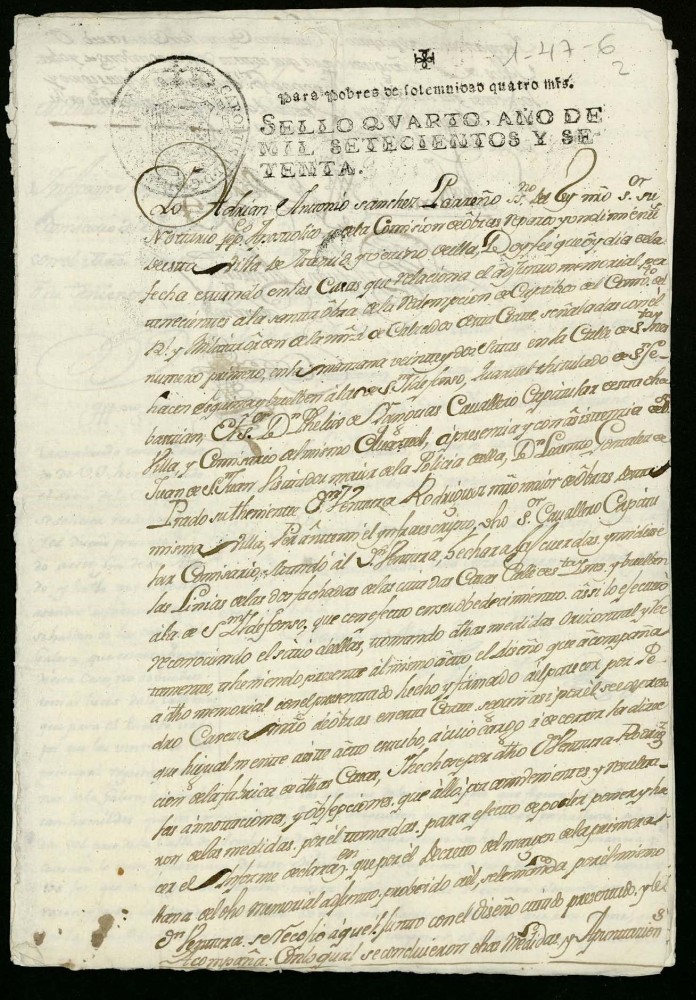 1-47-6
2
Para pobres de solemnidad quatro mrs.
SELLO QVARTO, AÑO DE
MIL SETECIENTOS Y SE
TENTA.
Yo Adrian Antonio Sanchez Ldreño ss.no del Rey nro s.or su
Notario pp.co Appostolico y de la Comision de Obras
de esta Villa de Madrid, y Vecino de ella, Doy fee que oy dia de la
fecha estando en las Casas que relaciona el adjunto memorial per
tenecientes a la santa obra de la Redempcion de Captibos del Comb.to de
R.l y Militar orden de la mrd de Calzados de esta Corte, señaladas con el
numero primero, en la manzana veinte y dos Sitas en la Calle de s.ta Ines
hacen esquina y buelben a la de s.n Ildefonso, Quartel titulado de s.n Se
bastian, El s.or D.n Phelix de Cavallero Capitular de esta dha
Villa, y Comisario del mismo Quartel, a presencia y con asistencia de D.n
Juan de S.n Juan maior de la Policia de ella, D.n Lorenzo Gonzalez de
Prado su theniente D.n Ventura Rodriguez mro maior de Obras de esta
misma Villa, Por ante mi el ynfraescripto, dho s.or Cavallero Capitu
lar Comisario, mandó al D.n Ventura, hechara los Cuerdas y midiese
las Linias de las dos fachadas de las cittadas Casas Calle de s.ta Ines, y buelben
a la de S.n Ildefonso, que con efecto en su obedecimiento assi lo efectuó
reconociendo el sitio de ellas, tomando dhas medidas Orizontal y rec
tamente, teniendo presente al mismo acto el diseño que acompaña
a dho memorial con el presentado hecho y firmado al parecer por Pe
dro Maestro de obras en esta Corte
que higualmente a este acto estubo, a cuio cargo de correr la direc
cion de la fabrica de dhas Casas, Y hechose por dho D.n Ventura Rodrig.z
las annotaciones, y que alló por combenientes, y resulta
ron de las medidas, por el tomadas para efecto de poder poner y ha
cer el Informe declaraz.on que por el Decreto del margen de la primera
llana del dho memorial adjunto, probeido se le manda por el mismo
D.n Ventura se Recojió aquel junto con el diseño citado presentado, y le
Acompaña: Con lo qual se concluieron dhas Medidas, y Apuntacion.s